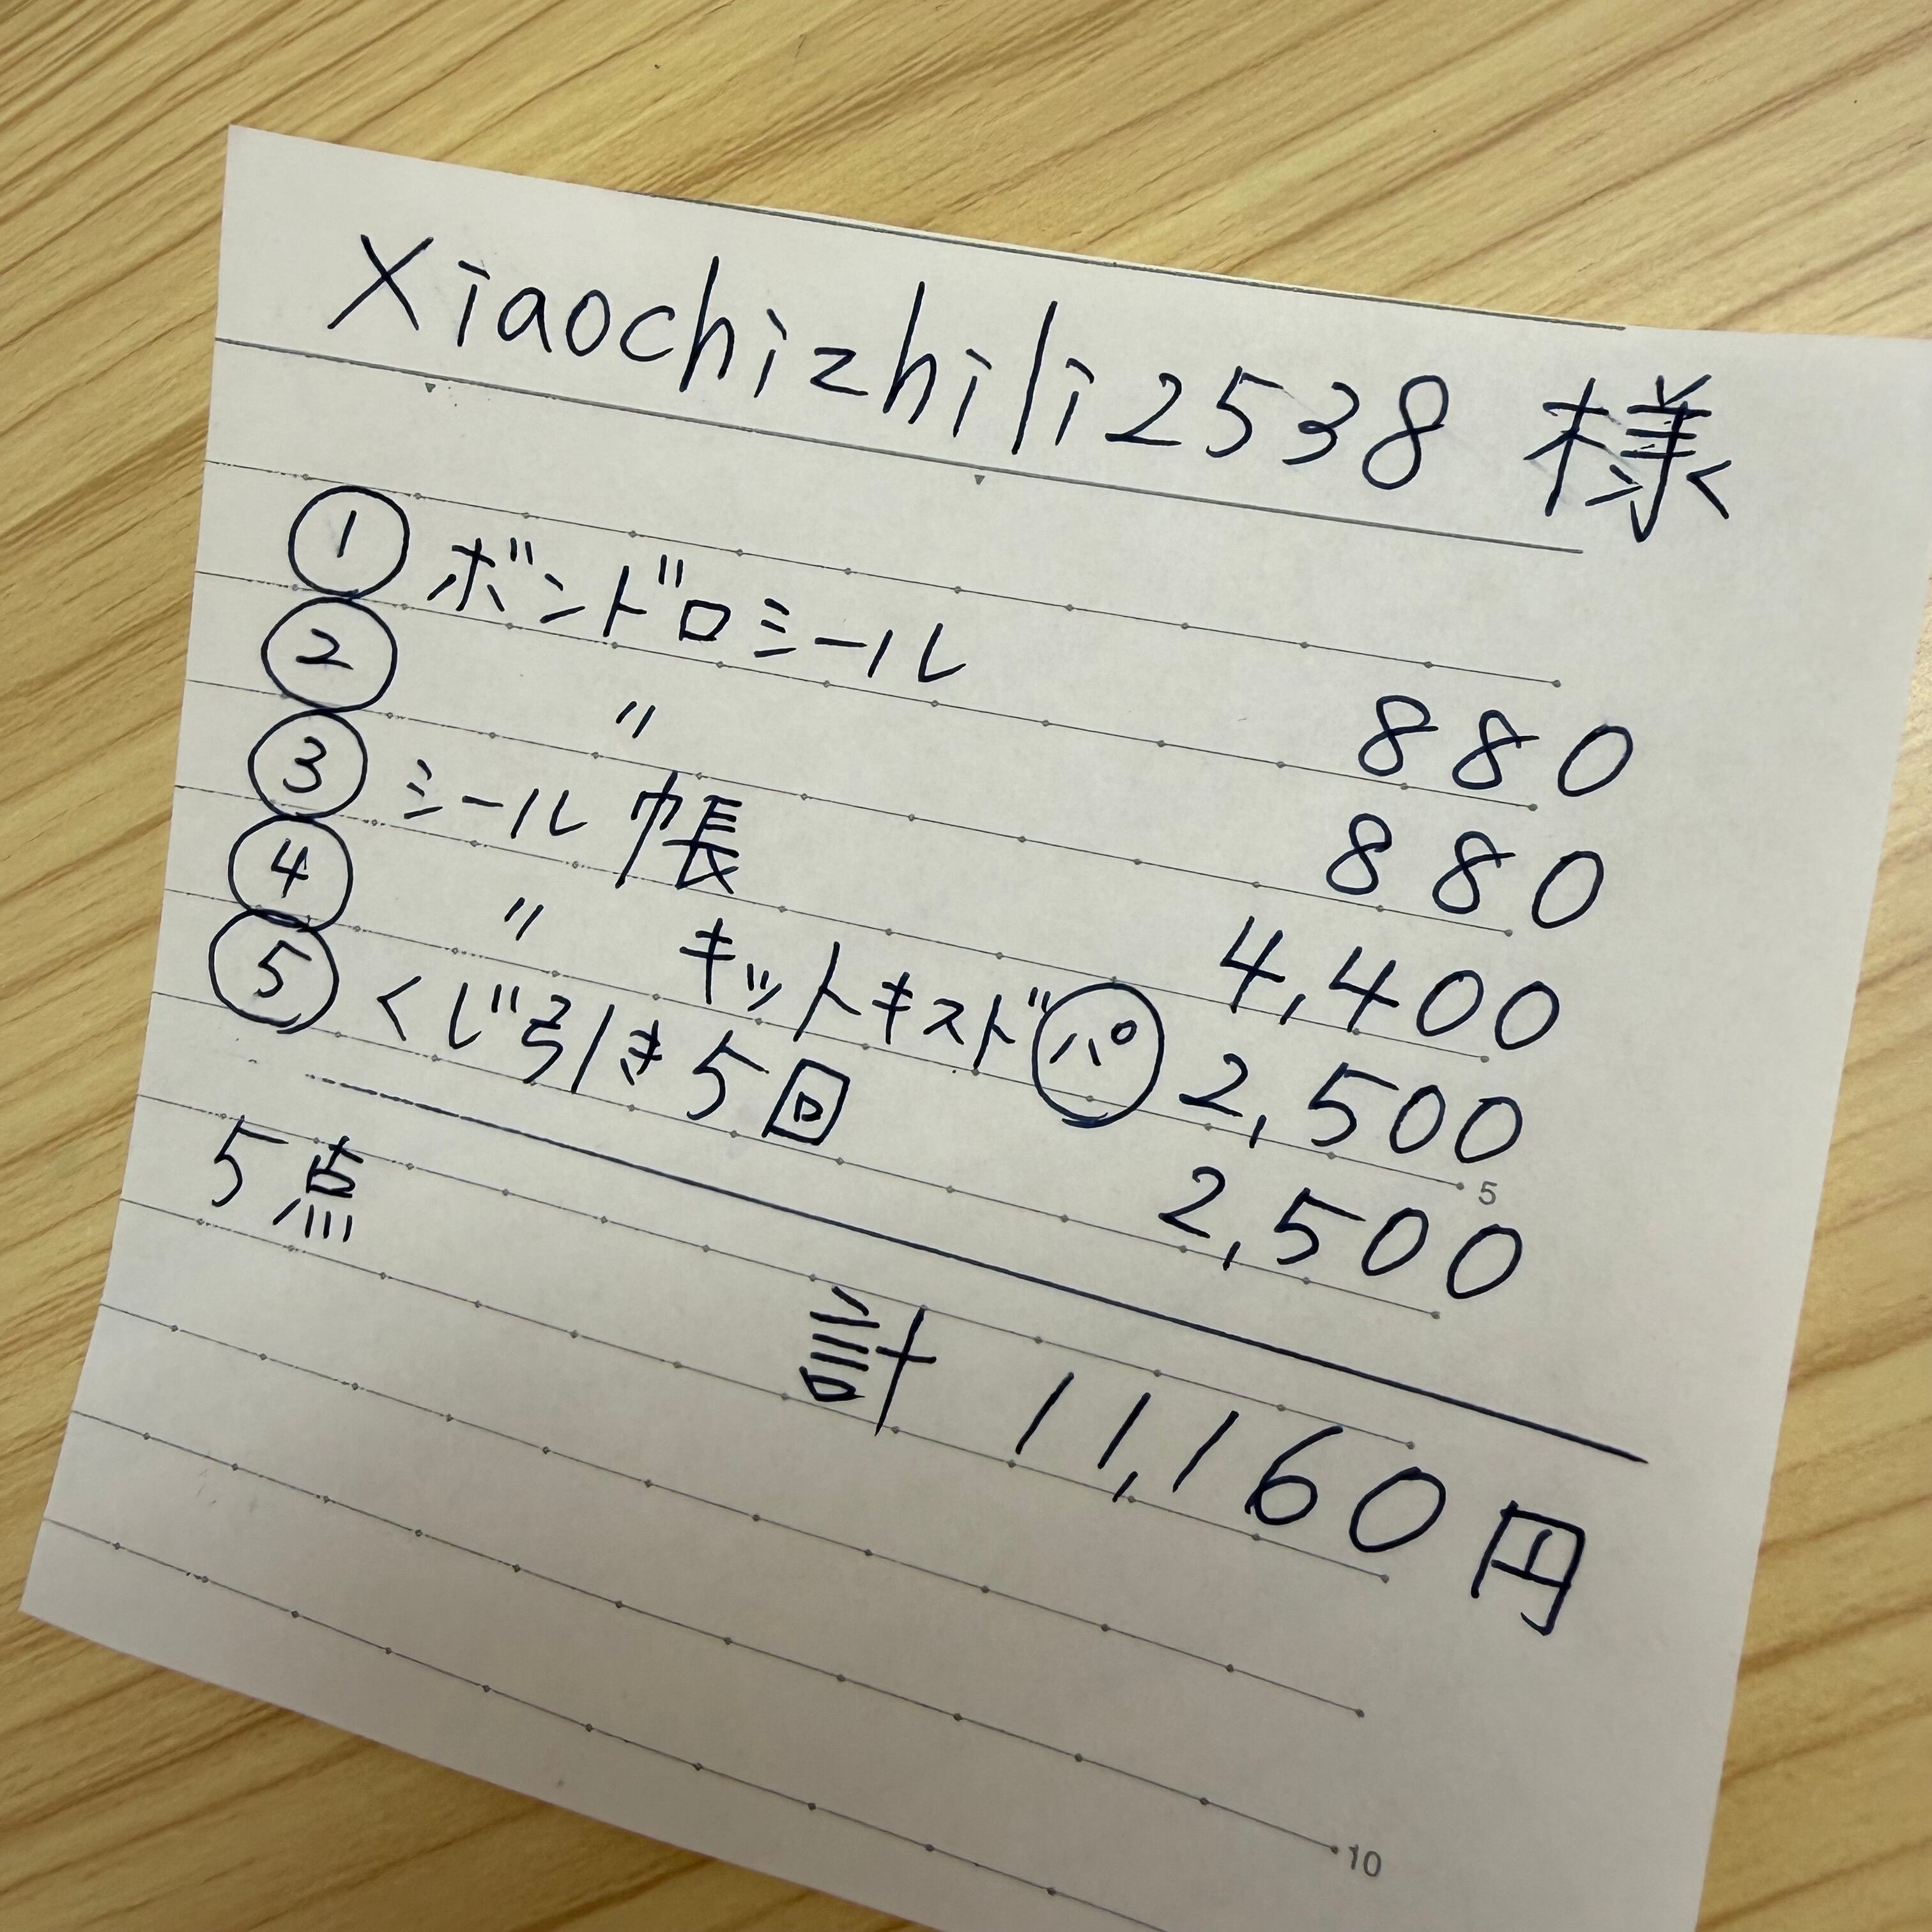 Xiaochizhili2538 様
① ボンドロシール 880
② 〃 880
③ シール帳 4,400
④ 〃 キットキスド㋩゚ 2,500
⑤ くじ引き5回 2,500
5点
計 11,160円
5
10